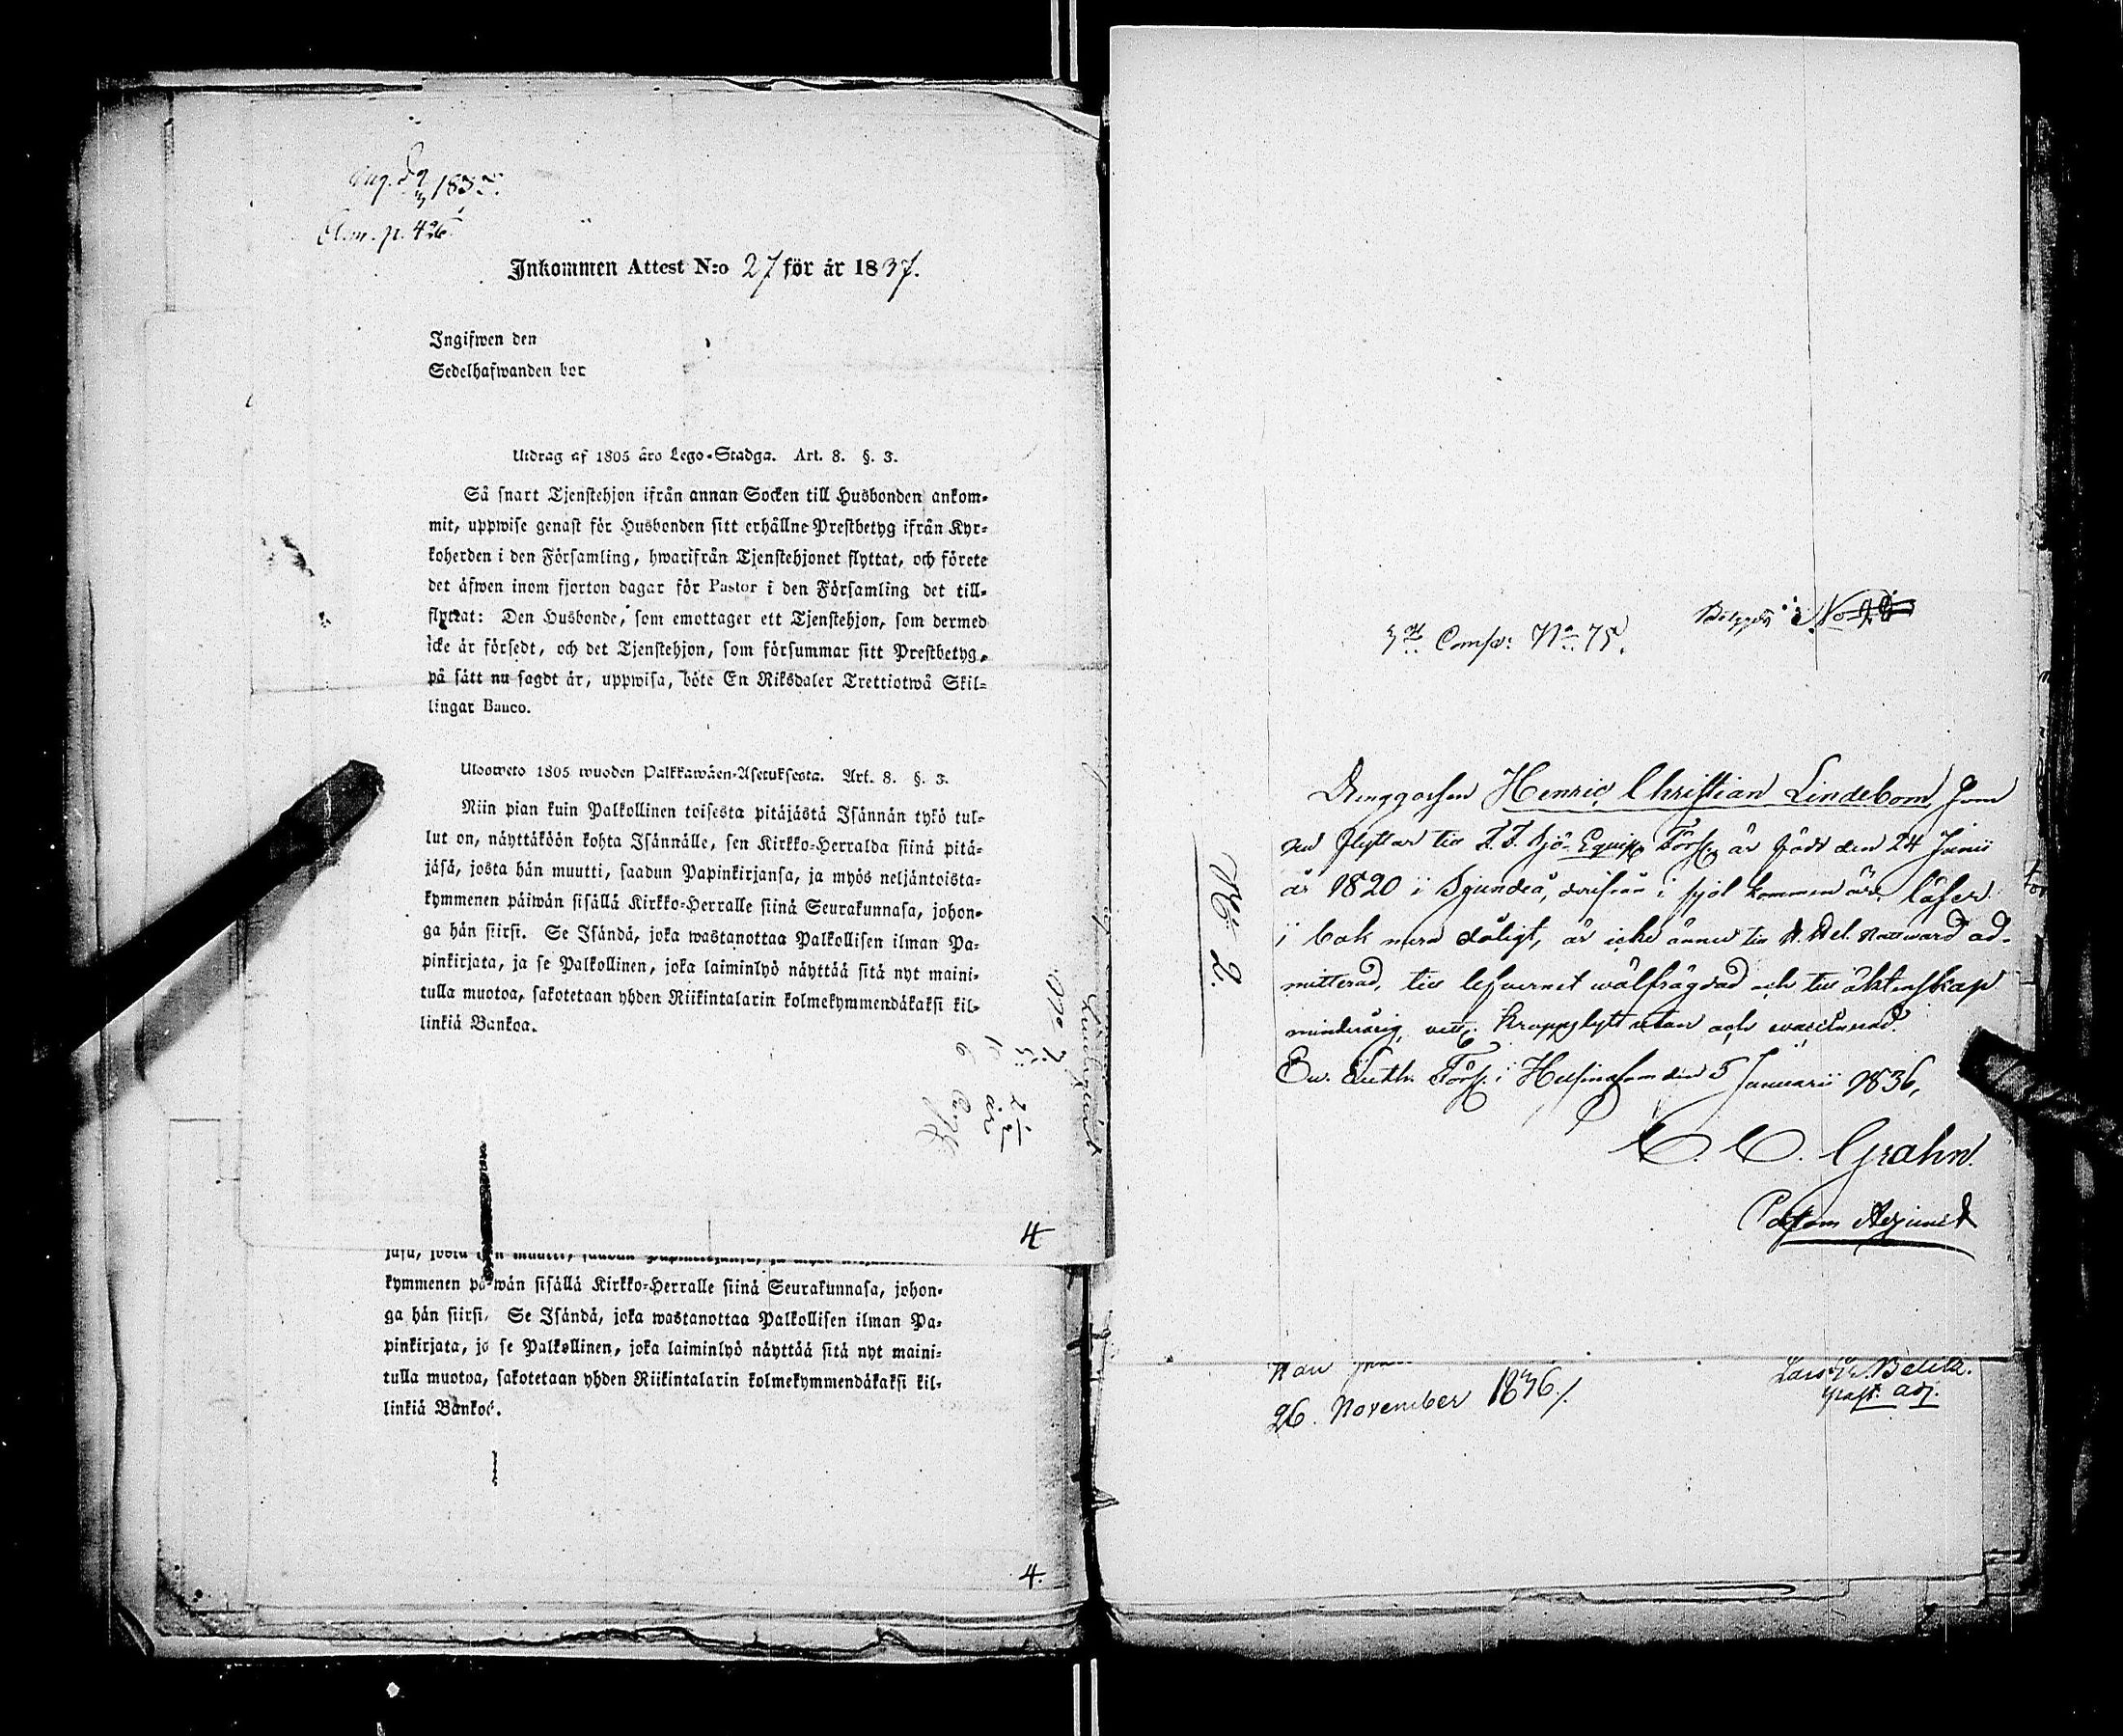 Inkommen Attest N:o 27 för år 1837.
Ingifwen den
Sedelhafwanden bor
Utdrag af 1805 års Lego-Stadga. Art. 8. §. 3.
Så snart Tjenstehjon ifrån annan Socken till Husbonden ankom-
mit, uppwise genast för Husbonden sitt erhållne Prestbetyg ifrån Kyr-
koherden i den Församling, hwarifrån Tjenstehjonet flyttat, och förete
det äfwen inom fjorton dagar för Pastor i den Församling det till-
flyttat: Den Husbonde, som emottager ett Tjenstehjon, som dermed
icke är försedt, och det Tjenstehjon, som försummar sitt Prestbetyg,
på sätt nu sagdt är, uppwisa, böte En Riksdaler Trettiotwå Skil-
lingar Banco.
Ulosweto 1805 wuoden Palkkawäen-Asetuksesta. Art. 8. §. 3.
Niin pian kuin Palkollinen toisesta pitäjästä Isännän tykö tul-
lut on, näyttäköön kohta Isännälle, sen Kirkko-Herralda siinä pitä-
jäsä, josta hän muutti, saadun Papinkirjansa, ja myös neljäntoista-
kymmenen päiwän sisällä Kirkko-Herralle siinä Seurakunnasa, johon-
ga hän siirsi. Se Isändä, joka wastanottaa Palkollisen ilman Pa-
pinkirjata, ja se Palkollinen, joka laiminlyö näyttää sitä nyt maini-
tulla muotoa, sakotetaan yhden Riikintalarin kolmekymmendäkaksi kil-
linkiä Bankoa.
4
kymmenen päiwän sisällä Kirkko-Herralle siinä Seurakunnasa, johon-
ga hän siirsi. Se Isändä, joka wastanottaa Palkollisen ilman Pa-
pinkirjata, ja se Palkollinen, joka laiminlyö näyttää sitä nyt maini-
tulla muotoa, sakotetaan yhden Riikintalarin kolmekymmendäkaksi kil-
linkiä Bankoa.
4.
Comp: No 75.
Drenggossen Henric Christian Lindebom, som
nu flyttar till F. F. Sjö-Equip Förs. är född den 24 Junii
år 1820 i Sjundeå, derifrån i fjol kommen är, läser
i bok men dåligt, är icke ännu till Nattvard ad-
mitterad, till lefvernet wälfrägdad och till äktenskap
minderårig, kroppslyt utan och vaccinerad.
Ev. Luth. Förs. i Helsingfors den 5 Januarii 1836,
C. C. Grahn.
Past. Adjunct
26. November 1836./.
adj.